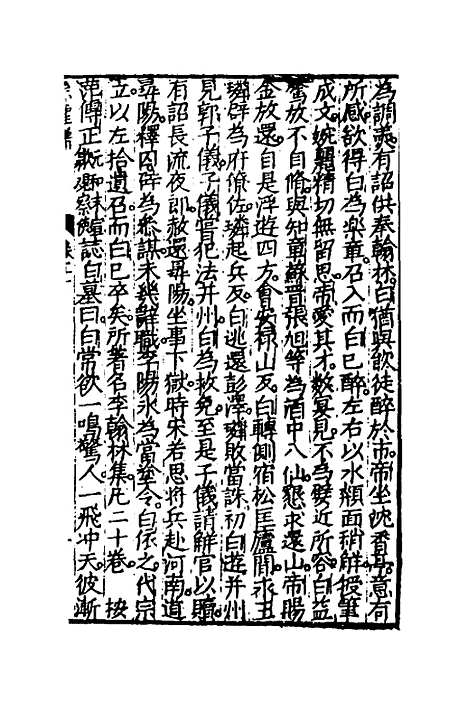 為調羹有詔供奉翰林白猶與飲徒醉於市帝坐沈香亭意有
所感欲得白為樂章召入而白已醉左右以水頮面稍解授筆
成文婉麗精切無留思帝愛其才數宴見不為親近所容白益
驁放不自脩與知章蘇晋張旭等為酒中八仙懇求還山帝賜
金放還自是浮遊四方會安禄山反白轉側宿松匡廬間永王
璘辟為府僚佐璘起兵反白逃還彭澤璘敗當誅初白遊并州
見郭子儀子儀甞犯法并州白為救免至是子儀請解官以贖
有詔長流夜郎赦還尋陽坐事下獄時宋若思將兵赴河南道
尋陽釋囚辟為叅謀未幾辭職李陽氷為當塗令白依之代宗
立以左拾遺召而白已卒矣所著名李翰林集凡二十卷 按
范傳正誌白墓曰白常欲一鳴驚人一飛冲天彼漸